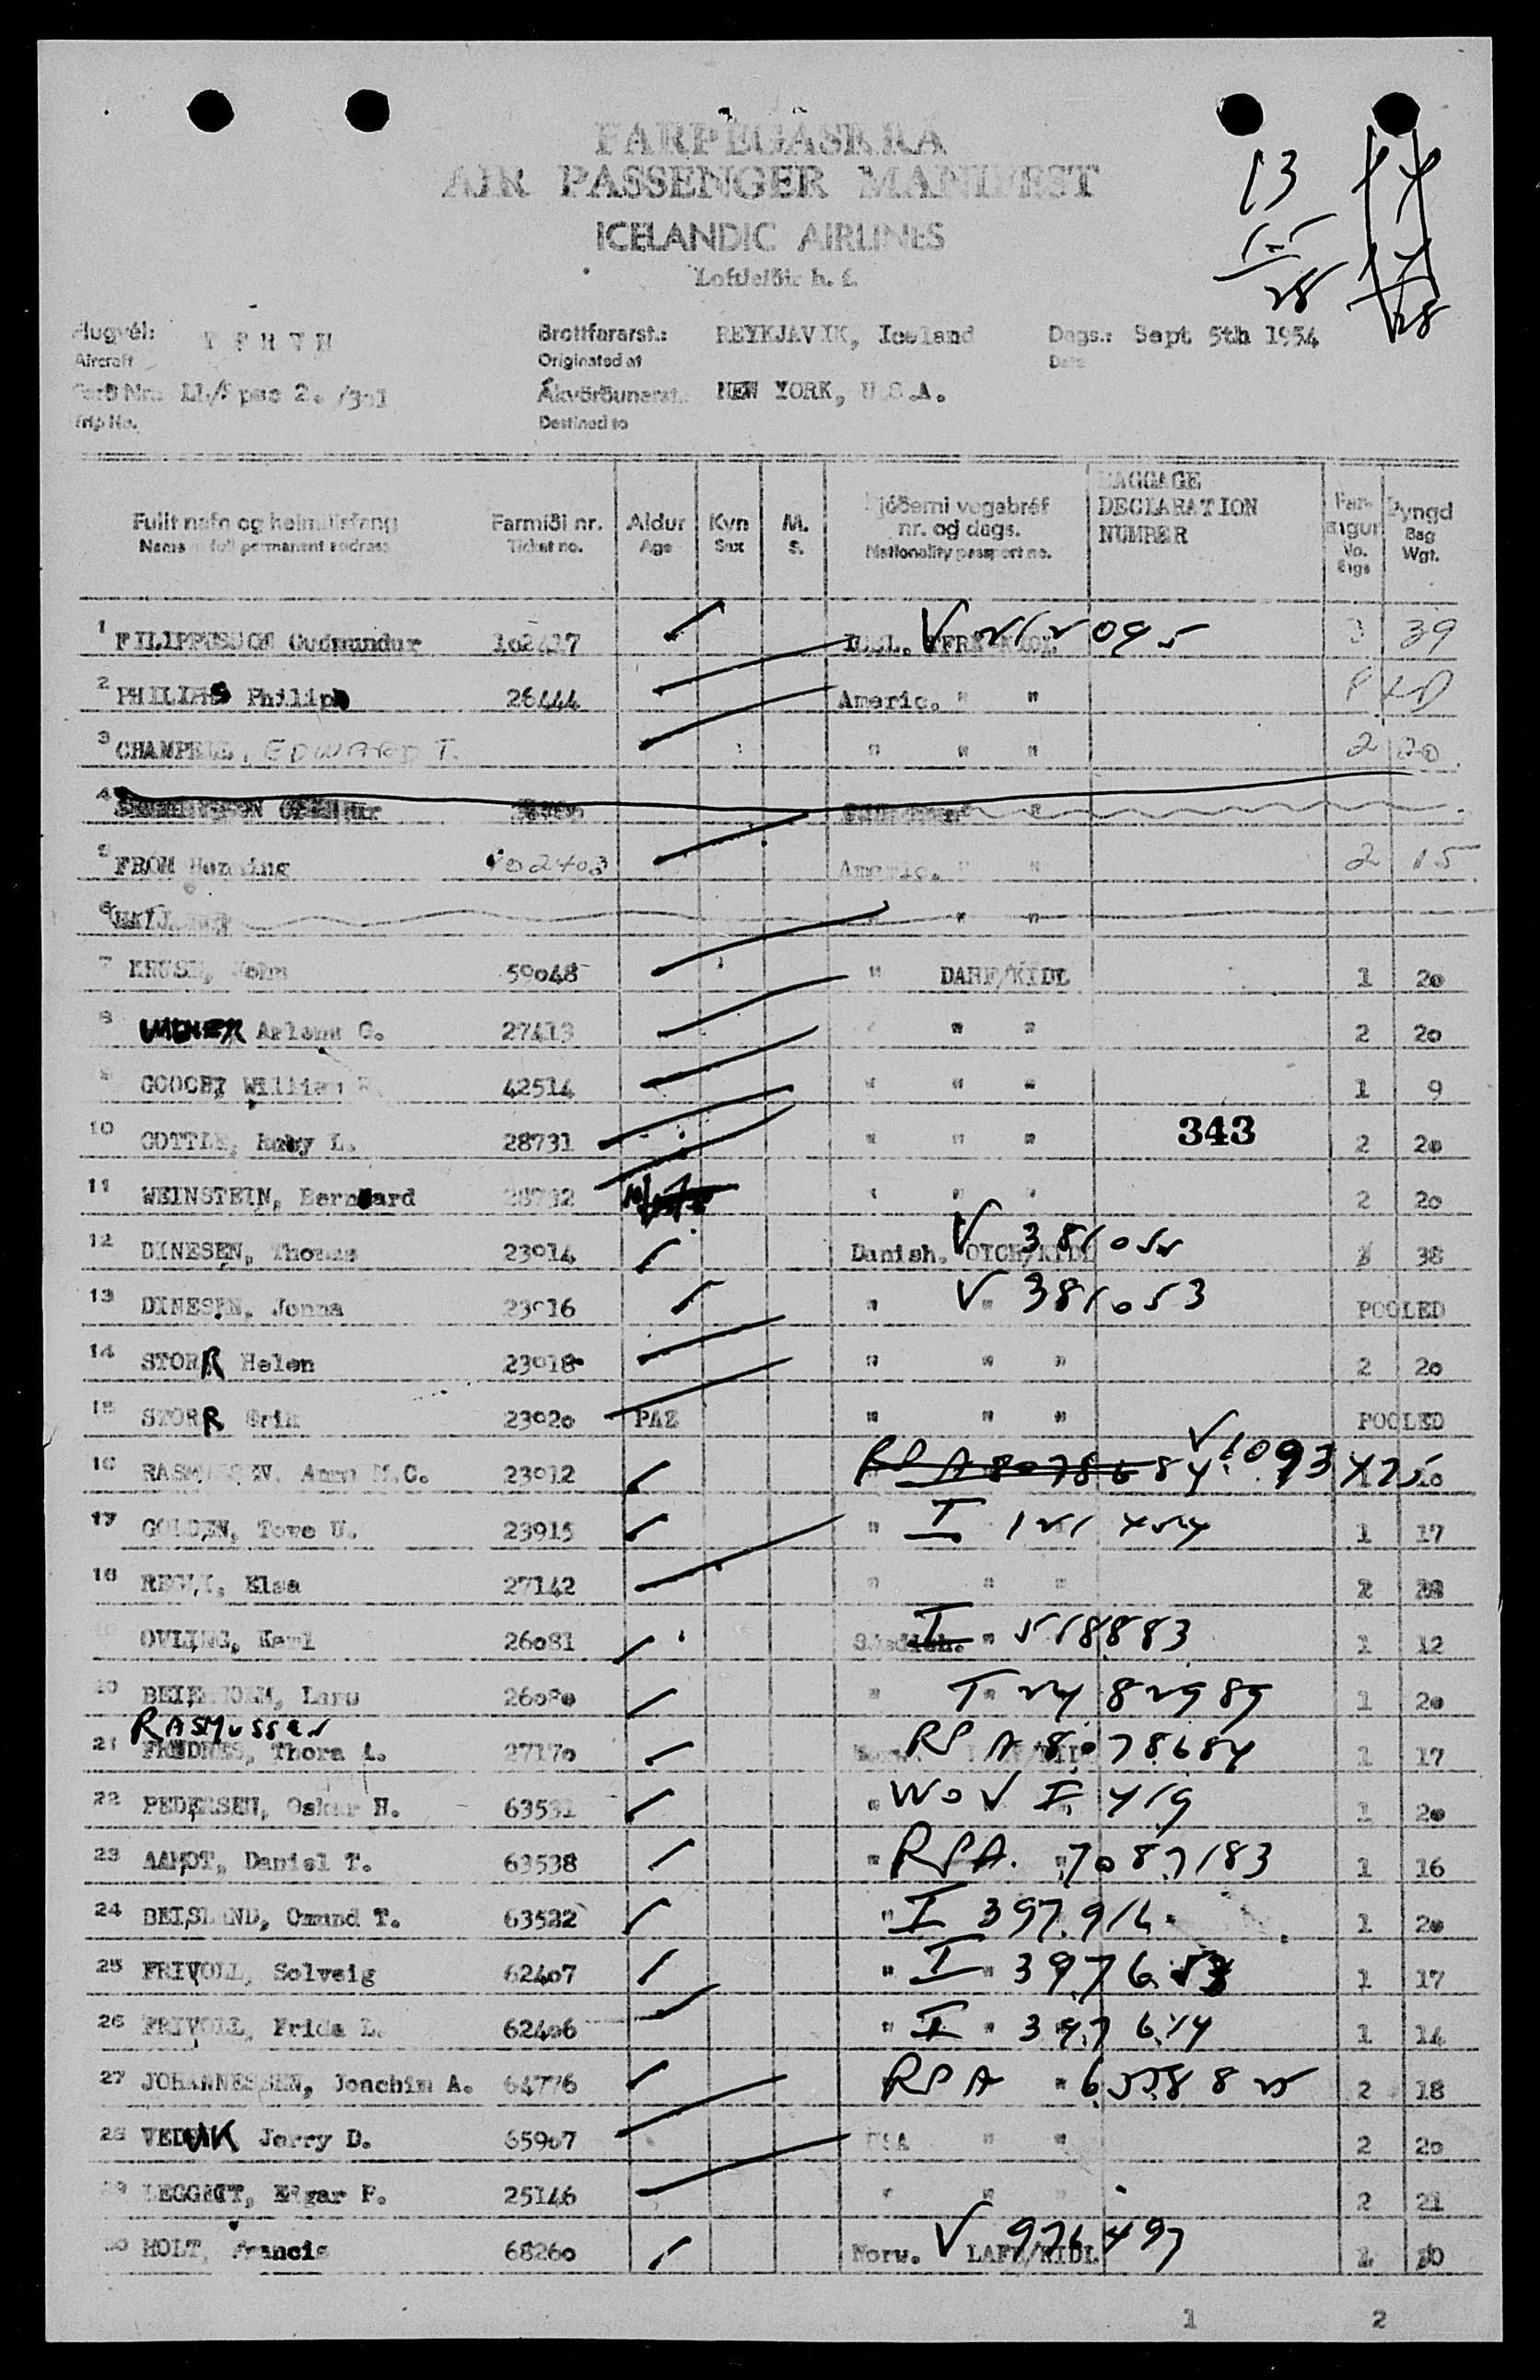 FARÞEGASKRÁ
AIR PASSENGER MANIFEST
ICELANDIC AIRLINES
Loftleiðir h. f.
13
15
28
14
14
28
Flugvél: Brottfararst.: REYKJAVIK, Iceland Dags.: Sept 5th 1954
Aircraft Originated at Date
Ferð Nr. Ákvörðunarst.: NEW YORK, U.S.A.
Trip No. Destined to
Fullt nafn og heimilisfang Farmiði nr. Aldur Kyn M. Þjóðerni vegabréf nr. og dags. BAGGAGE DECLARATION NUMBER Þyngd
Name in full permanent address Ticket no. Age Sex S. Nationality passport no. No. Bgs Bag Wgt.
1 FILIPPUSSON Gudmundur 102417 V 2122095 3 39
2 PHILIPS Philip 26444 Americ. " "
3 CHAMPELL, EDWARD T. " " " 2 20
4
5 FROM Henning 102403 Americ. " " 2 15
6 " " "
7 KRUSE, John 59048 " DARF/KIDL 1 20
8 Arlene G. 27413 " " " 2 20
9 GOOCH, William 42514 " " " 1 9
10 COTTLE, Ruby L. 28731 " " " 343 2 20
11 WEINSTEIN, Bernard 28732 " " " 2 20
12 DINESEN, Thomas 23014 Danish. OTCH/KIDL V 381052 38
13 DINESEN, Jonna 23016 " V " 381053 POOLED
14 STORR Helen 23018 " " " 2 20
15 STORR Erik 23020 PAZ " " " POOLED
16 RASMUSSEN, Anna M.C. 23012 RP A 8078684 V 1093475 1 10
17 GOLDEN, Tove U. 23915 " I 121454 1 17
18 Elsa 27142 " " " 2
OVLING, Karl 26081 Swedish. I " 518883 1 12
20 Lars 26080 " I " 2482989 1 20
RASMUSSEN
21 Thora A. 27170 RP A 8078684 1 17
22 PEDERSEN, Oskar H. 63531 " WOV I 419 1 20
23 AAMOT, Daniel T. 63538 " RPA. 7087183 1 16
24 BEISLAND, Omund T. 63522 " I 397916 1 20
25 FRIVOLL, Solveig 62407 " I " 397653 1 17
26 FRIVOLL, Frida L. 62406 " I " 397614 1 14
27 JOHANNESSEN, Joachim A. 64776 RPA " 2 18
28 VEDVIK Jerry D. 65907 USA " " 2 20
29 LEGGETT, Edgar P. 25146 " " " 2 21
30 HOLT, Francis 68260 Norw. V LAFE/KIDL 976497 1
1 2